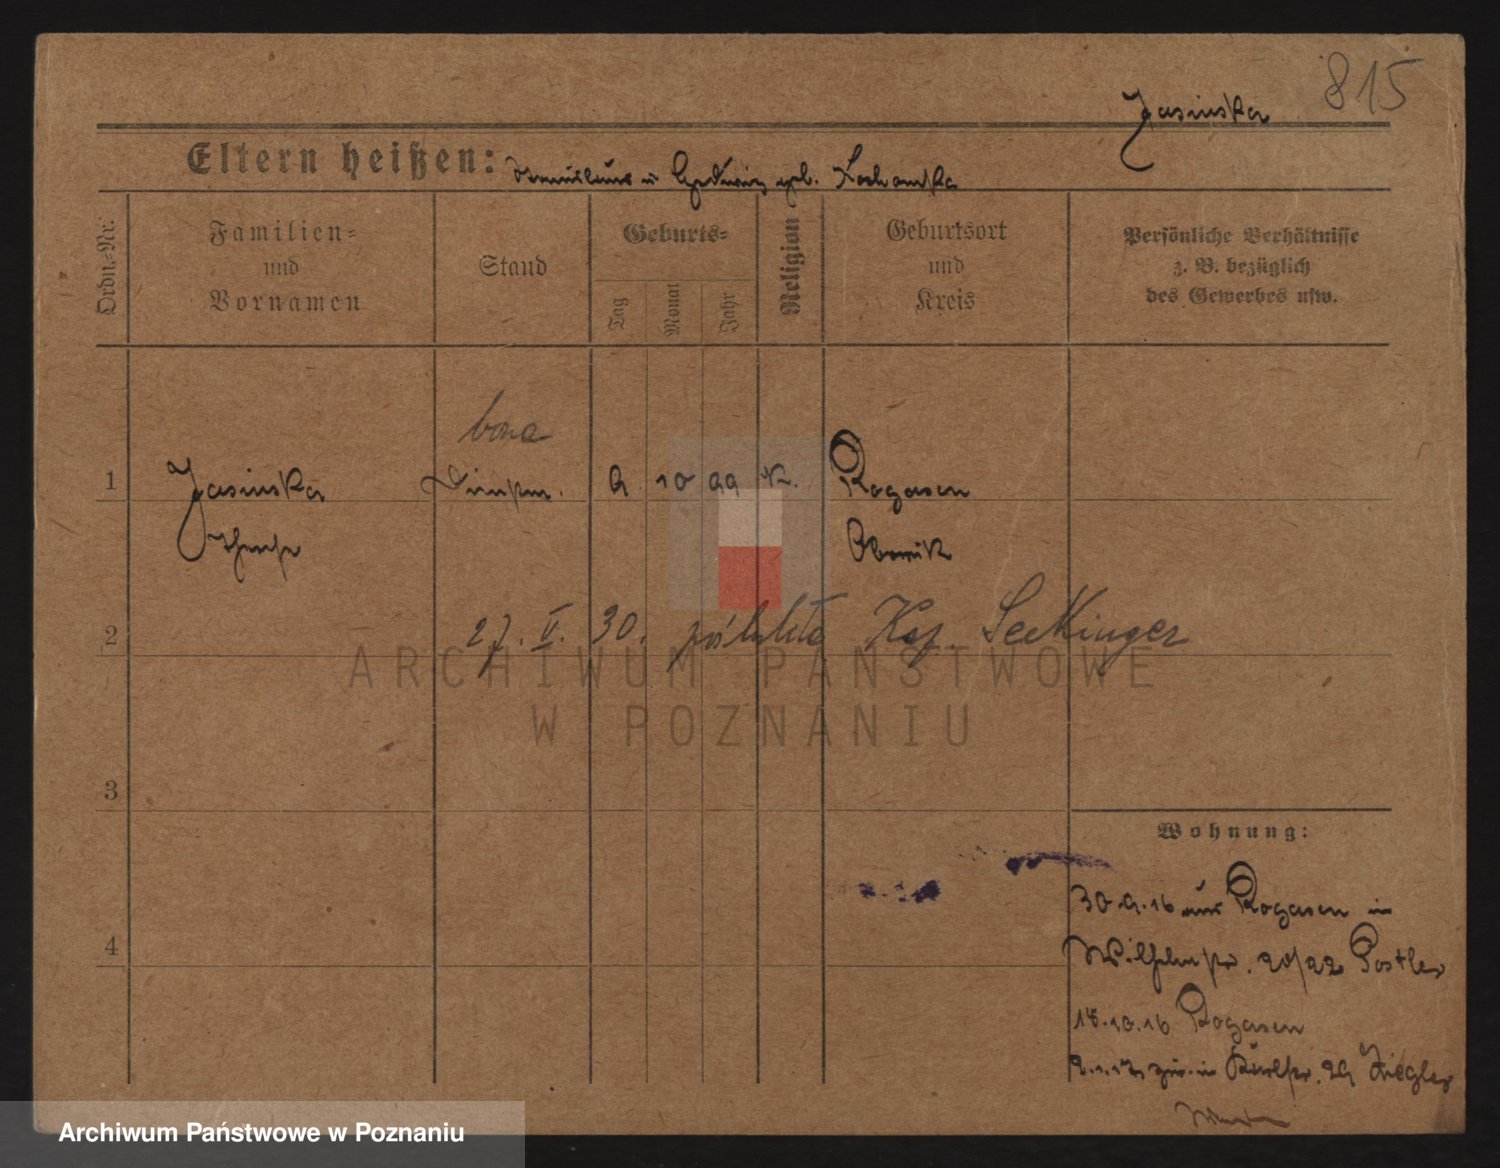 815
Jasinska
Eltern heißen: Stanislaus u Hedwig geb.
Ordn.-Nr.
Familien=
und
Vornamen
Stand
Geburts=
Tag
Monat
Jahr
Religion
Geburtsort
und
Kreis
Persönliche Verhältnisse
z. B. bezüglich
des Gewerbes usw.
bona
1 Jasinska Dienstm. 9 10 99 K. Rogasen
Obornik
2 27. V. 30. Seckinger
ARCHIWUM PAŃSTWOWE
W POZNANIU
3
Wohnung:
30.9.16 aus Rogasen in
4 Wilhelmstr. 20/22 Postler
18.10.16 Rogasen
29 Ziegler
Archiwum Państwowe w Poznaniu